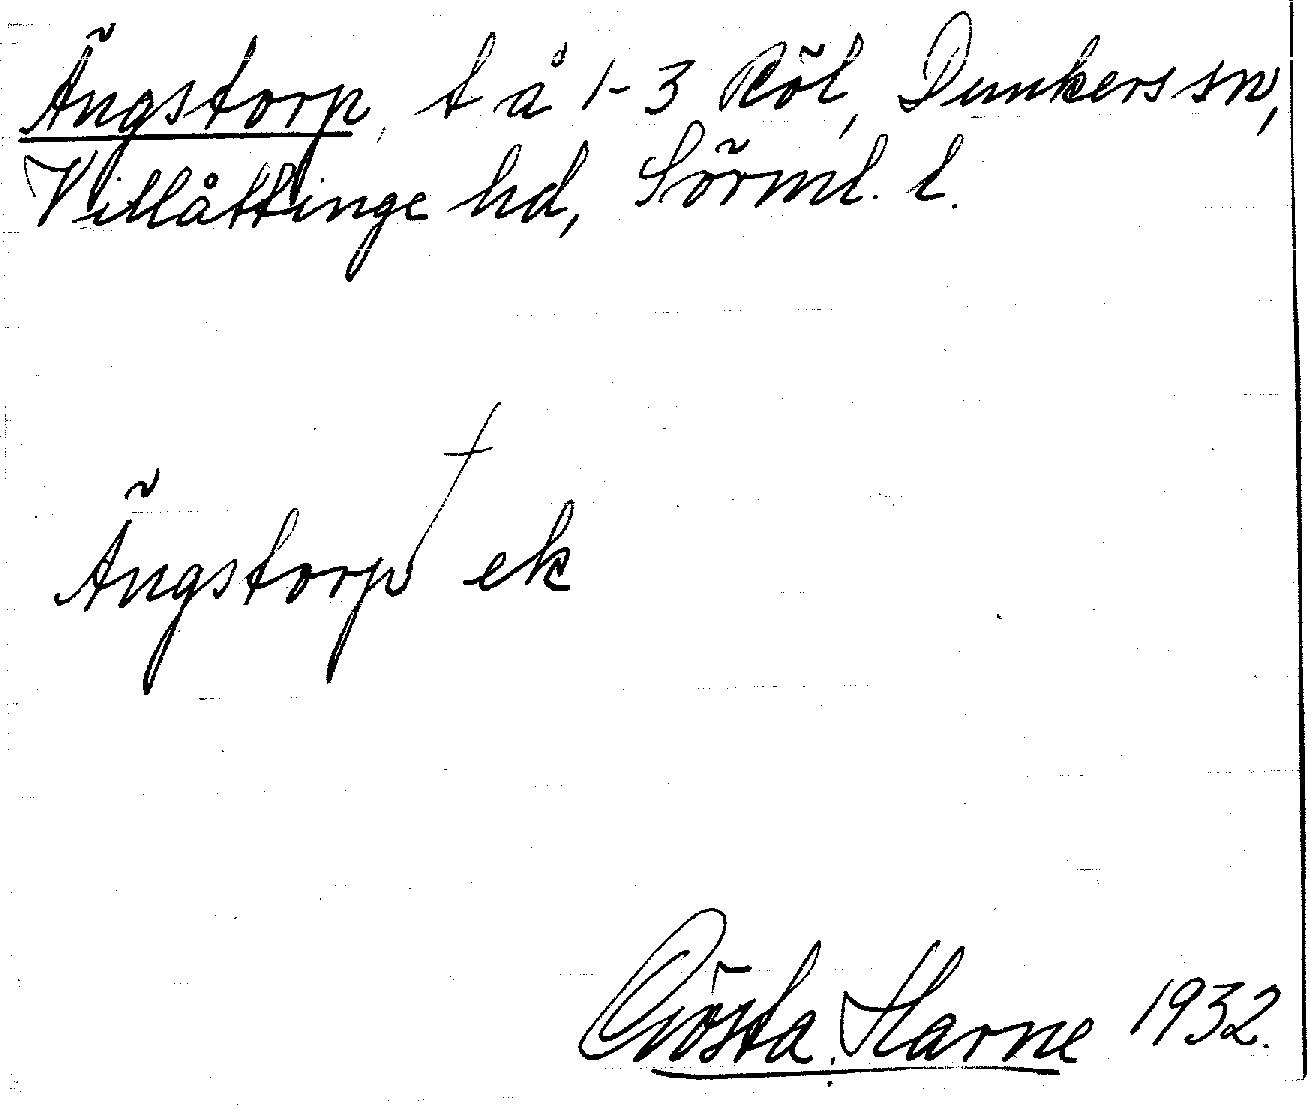 Ängstorp, t å 1-3 Röl, Dunkers sn,
Villåttinge hd, Sörml. l.
Ängstorp† ek
Gösta Harne 1932.